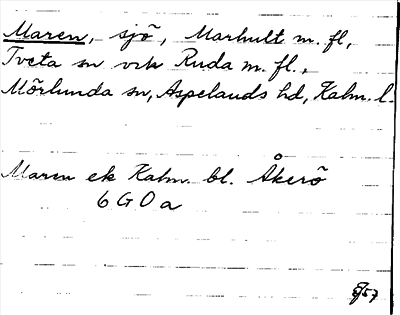 Maren, sjö, Marhult m. fl,
Tveta sn och Ruda m. fl.,
Mörlunda sn, Aspelands hd, Kalm. l.
Maren ek Kalm. bl. Åkerö
6 G 0 a
57